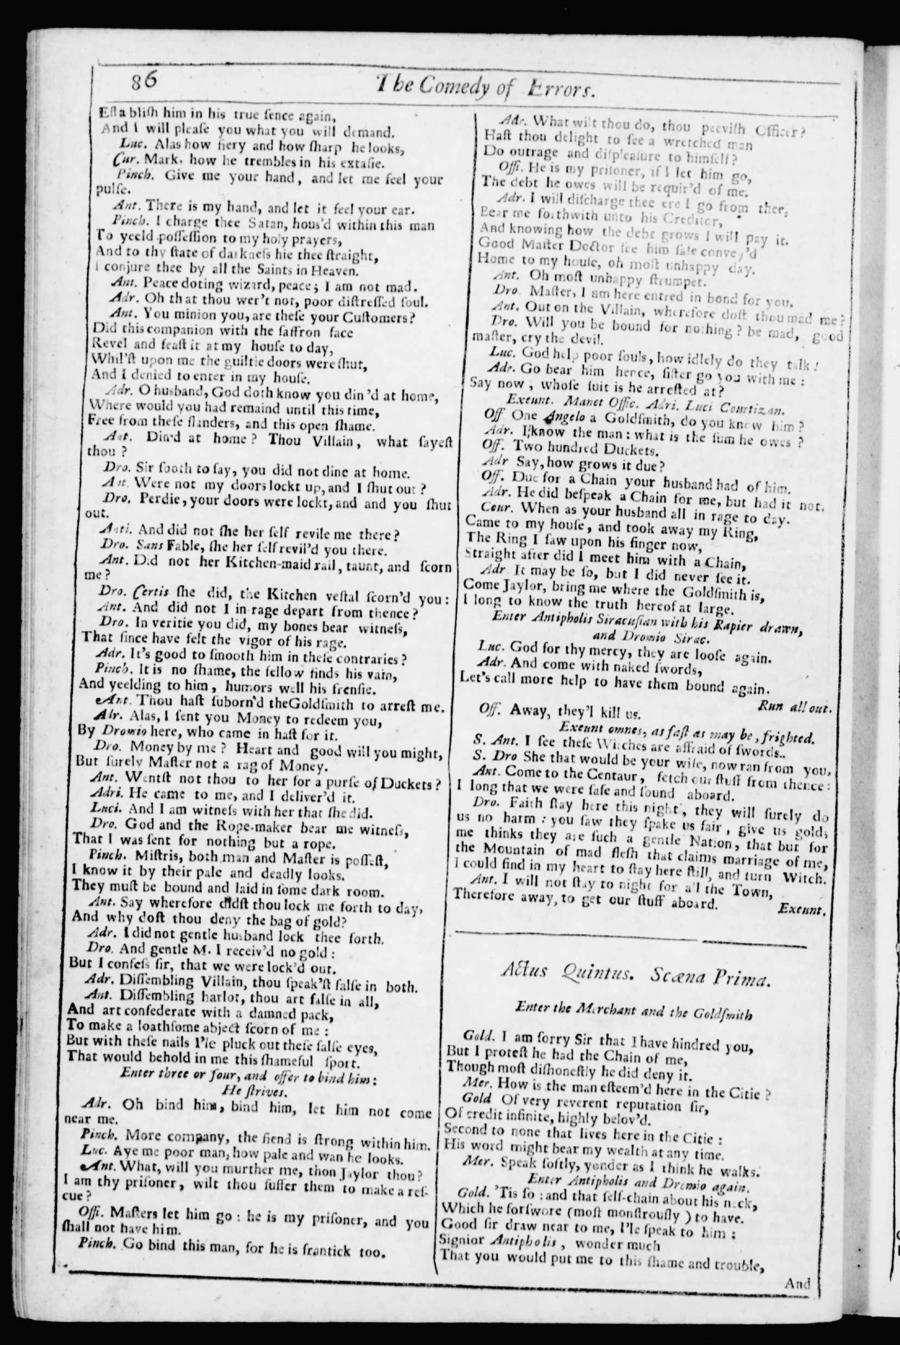 86
The Comedy of Errors.
Establish him in his true sence again,
And I will please you what you will demand.
Luc. Alas how fiery and how sharp he looks,
Cur. Mark, how he trembles in his extasie.
Pinch. Give me your hand, and let me feel your
pulse.
Ant. There is my hand, and let it feel your ear.
Pinch. I charge thee Satan, hous'd within this man
To yeeld possession to my holy prayers,
And to thy state of darkness hie thee straight,
I conjure thee by all the Saints in Heaven.
Ant. Peace doting wizard, peace; I am not mad.
Adr. Oh that thou wer't not, poor distressed soul.
Ant. You minion you, are these your Customers?
Did this companion with the saffron face
Revel and feast it at my house to day,
Whil'st upon me the guiltie doors were shut,
And I denied to enter in my house.
Adr. O husband, God doth know you din'd at home,
Where would you had remaind until this time,
Free from these slanders, and this open shame.
Ant. Din'd at home? Thou Villain, what sayest
thou?
Dro. Sir sooth to say, you did not dine at home.
Ant. Were not my doors lockt up, and I shut out?
Dro. Perdie, your doors were lockt, and and you shut
out.
Anti. And did not she her self revile me there?
Dro. Sans Fable, she her self revil'd you there.
Ant. Did not her Kitchen-maid rail, taunt, and scorn
me?
Dro. Certis she did, the Kitchen vestal scorn'd you:
Ant. And did not I in rage depart from thence?
Dro. In veritie you did, my bones bear witness,
That since have felt the vigor of his rage.
Adr. It's good to smooth him in these contraries?
Pinch. It is no shame, the fellow finds his vain,
And yeelding to him, humors well his frensie.
Ant. Thou hast suborn'd the Goldsmith to arrest me.
Adr. Alas, I sent you Money to redeem you,
By Dromio here, who came in hast for it.
Dro. Money by me? Heart and good will you might,
But surely Master not a rag of Money.
Ant. Wentst not thou to her for a purse of Duckets?
Adri. He came to me, and I deliver'd it.
Luci. And I am witness with her that she did.
Dro. God and the Rope-maker bear me witness,
That I was sent for nothing but a rope.
Pinch. Mistris, both man and Master is possest,
I know it by their pale and deadly looks.
They must be bound and laid in some dark room.
Ant. Say wherefore didst thou lock me forth to day,
And why dost thou deny the bag of gold?
Adr. I did not gentle husband lock thee forth.
Dro. And gentle M. I receiv'd no gold:
But I confess sir, that we were lock'd out.
Adr. Dissembling Villain, thou speak'st false in both.
Ant. Dissembling harlot, thou art false in all,
And art confederate with a damned pack,
To make a loathsome abject scorn of me:
But with these nails I'le pluck out these false eyes,
That would behold in me this shameful sport.
Enter three or four, and offer to bind him:
He strives.
Adr. Oh bind him, bind him, let him not come
near me.
Pinch. More company, the fiend is strong within him.
Luc. Aye me poor man, how pale and wan he looks.
Ant. What, will you murther me, thou Jaylor thou?
I am thy prisoner, wilt thou suffer them to make a res-
cue?
Offi. Masters let him go: he is my prisoner, and you
shall not have him.
Pinch. Go bind this man, for he is frantick too.
Adr. What wilt thou do, thou peevish Officer?
Hast thou delight to see a wretched man
Do outrage and displeasure to himself?
Offi. He is my prisoner, if I let him go,
The debt he owes will be requir'd of me.
Adr. I will discharge thee ere I go from thee,
Bear me forthwith unto his Creditor,
And knowing how the debt grows I will pay it.
Good Master Doctor see him safe convey'd
Home to my house, oh most unhappy day.
Ant. Oh most unhappy strumpet.
Dro. Master, I am here entred in bond for you.
Ant. Out on the Villain, wherefore dost thou mad me?
Dro. Will you be bound for nothing? be mad, good
master, cry the devil.
Luc. God help poor souls, how idlely do they talk!
Adr. Go bear him hence, sister go you with me:
Say now, whose suit is he arrested at?
Exeunt. Manet Offic. Adri. Luci Courtizan.
Off One Angelo a Goldsmith, do you know him?
Adr. I know the man: what is the sum he owes?
Off. Two hundred Duckets.
Adr Say, how grows it due?
Off. Due for a Chain your husband had of him.
Adr. He did bespeak a Chain for me, but had it not.
Cour. When as your husband all in rage to day.
Came to my house, and took away my Ring,
The Ring I saw upon his finger now,
Straight after did I meet him with a Chain,
Adr It may be so, but I did never see it.
Come Jaylor, bring me where the Goldsmith is,
I long to know the truth hereof at large.
Enter Antipholis Siracusian with his Rapier drawn,
and Dromio Sirac.
Luc. God for thy mercy, they are loose again.
Adr. And come with naked swords,
Let's call more help to have them bound again.
Run all out.
Off. Away, they'l kill us.
Exeunt omnes, as fast as may be, frighted.
S. Ant. I see these Witches are affraid of swords.
S. Dro She that would be your wife, now ran from you,
Ant. Come to the Centaur, fetch our stuff from thence:
I long that we were safe and sound aboard.
Dro. Faith stay here this night, they will surely do
us no harm: you saw they spake us fair, give us gold;
me thinks they are such a gentle Nation, that but for
the Mountain of mad flesh that claims marriage of me,
I could find in my heart to stay here still, and turn Witch.
Ant. I will not stay to night for all the Town,
Therefore away, to get our stuff aboard.
Exeunt.
Actus Quintus. Scæna Prima.
Enter the Merchant and the Goldsmith
Gold. I am sorry Sir that I have hindred you,
But I protest he had the Chain of me,
Though most dishonestly he did deny it.
Mer. How is the man esteem'd here in the Citie?
Gold Of very reverent reputation sir,
Of credit infinite, highly belov'd.
Second to none that lives here in the Citie:
His word might bear my wealth at any time.
Mer. Speak softly, yonder as I think he walks.
Enter Antipholis and Dromio again.
Gold. 'Tis so: and that self-chain about his neck,
Which he forswore (most monstrously) to have.
Good sir draw near to me, I'le speak to him:
Signior Antipholis, wonder much
That you would put me to this shame and trouble,
And